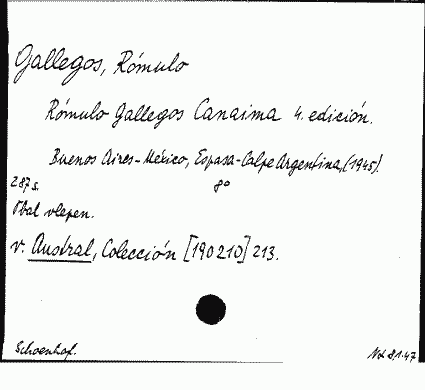 Gallegos, Rómulo
Rómulo Gallegos Canaima 4. edición.
Buenos Aires-México, Espasa-Calpe Argentina, (1945).
287 s. 8°
Obal vlepen.
v. Austral, Colección [190210] 213.
Schoenhof.